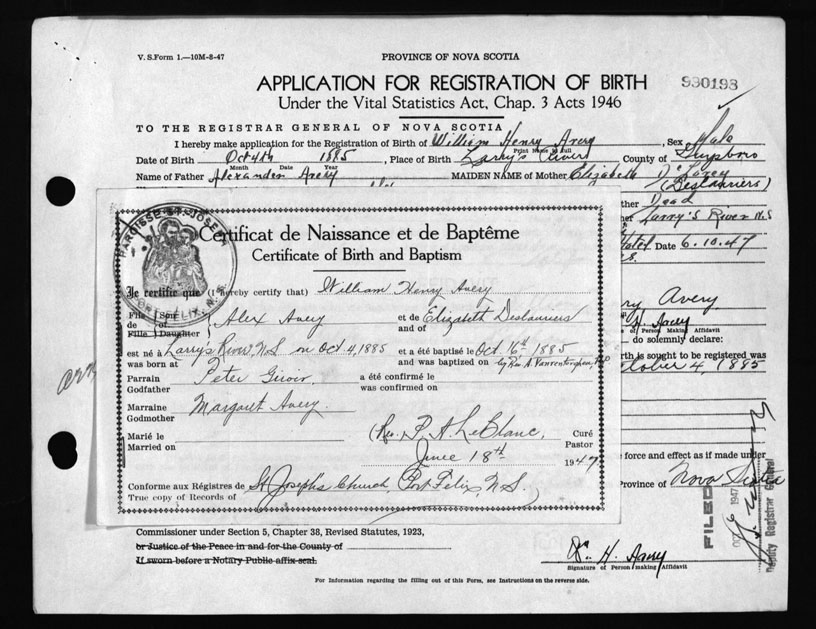 V. S. Form 1.—10M-8-47
PROVINCE OF NOVA SCOTIA
APPLICATION FOR REGISTRATION OF BIRTH
930198
Under the Vital Statistics Act, Chap. 3 Acts 1946
TO THE REGISTRAR GENERAL OF NOVA SCOTIA
I hereby make application for the Registration of Birth of William Henry Avery, Sex Male
Print Name in full
Date of Birth Oct 4th 1885, Place of Birth Larry's River, County of Guysboro
Month Date Year
Name of Father Alexander Avery MAIDEN NAME of Mother Elizabeth
(Deslauriers)
Dead
Larry's River N.S
Date 6.10.47
Avery
H. Avery
making Affidavit
do solemnly declare:
birth is sought to be registered was
October 4, 1885
force and effect as if made under
Province of Nova Scotia
FILED
1947
Deputy Registrar General
PAROISSE ST. JOSEPH
PORT FELIX, N. S.
Certificat de Naissance et de Baptême
Certificate of Birth and Baptism
Je certifie que (I hereby certify that) William Henry Avery
Fils Son
de of Alex Avery et de Elizabeth Deslauriers
Fille Daughter and of
est né à Larry's River, N.S. on Oct 4, 1885 et a été baptisé le Oct. 16th 1885
was born at and was baptized on by Rev. A.
Parrain Peter Giroir. a été confirmé le
Godfather was confirmed on
Marraine Margaret Avery.
Godmother
Marié le (Rev. P. A. LeBlanc, Curé
Married on Pastor
June 18th 1947
Conforme aux Régistres de St Joseph's Church, Port Felix, N.S.
True copy of Records of
Commissioner under Section 5, Chapter 38, Revised Statutes, 1923,
or Justice of the Peace in and for the County of
If sworn before a Notary Public affix seal.
W. H. Avery
Signature of Person making Affidavit
For Information regarding the filling out of this Form, see Instructions on the reverse side.